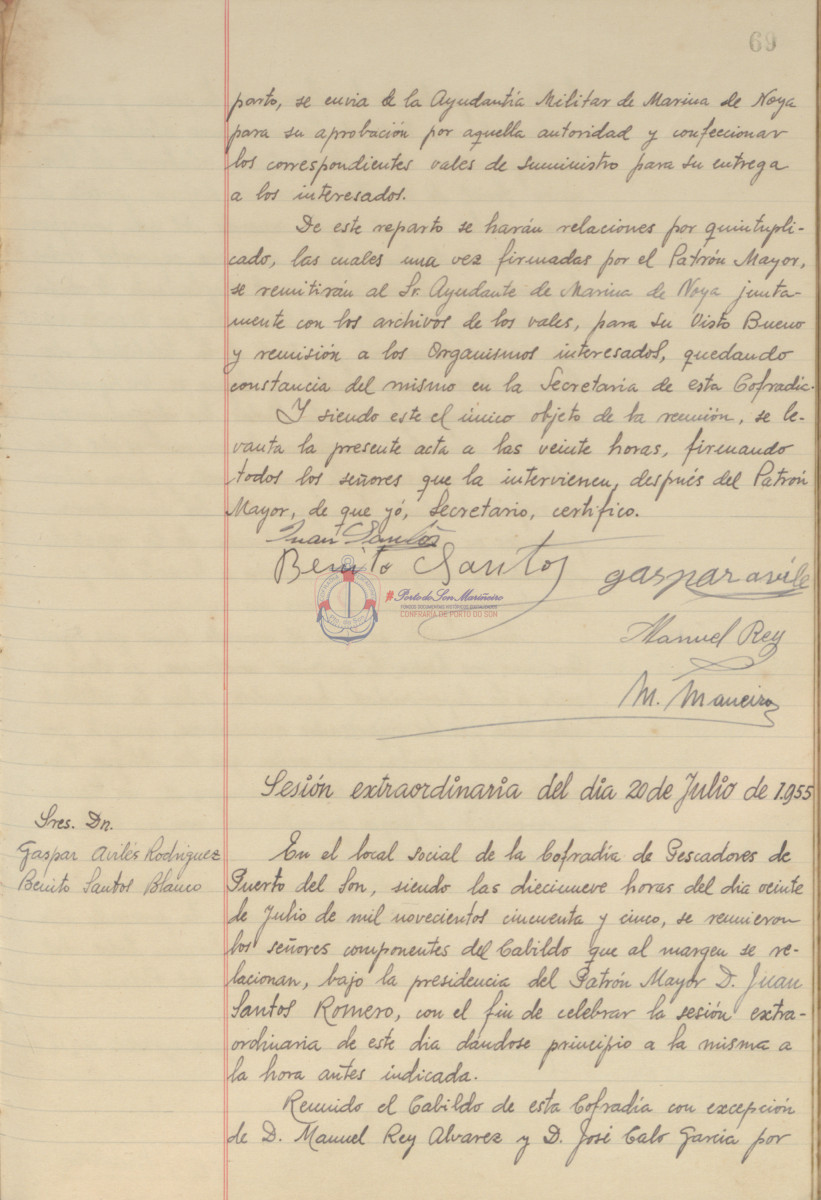 69
parto, se envia a la Ayudantía Militar de Marina de Noya
para su aprobación por aquella autoridad y confeccionar
los correspondientes vales de suministro para su entrega
a los interesados.
De este reparto se harán relaciones por quintupli-
cado, las cuales una vez firmadas por el Patrón Mayor,
se remitirán al Sr. Ayudante de Marina de Noya junta-
mente con los archivos de los vales, para su Visto Bueno
y remisión a los Organismos interesados, quedando
constancia del mismo en la Secretaría de esta Cofradía.
Y siendo este el único objeto de la reunión, se le-
vanta la presente acta a las veinte horas, firmando
todos los señores que la intervienen, después del Patrón
Mayor, de que yó, Secretario, certifico.
Juan Santos
Benito Santos
gaspar avile
#PortodoSon Mariñeiro
CONFRARÍA DE PORTO DO SON
Manuel Rey
M. Maneiro
Sesión extraordinaria del dia 20 de Julio de 1.955
Sres. Dn.
Gaspar Avilés Rodriguez
Benito Santos Blanco
En el local social de la Cofradía de Pescadores de
Puerto del Son, siendo las diecinueve horas del dia veinte
de Julio de mil novecientos cincuenta y cinco, se reunieron
los señores componentes del Cabildo que al margen se re-
lacionan, bajo la presidencia del Patrón Mayor D. Juan
Santos Romero, con el fin de celebrar la sesión extra-
ordinaria de este dia dándose principio a la misma a
la hora antes indicada.
Reunido el Cabildo de esta Cofradía con excepción
de D. Manuel Rey Alvarez y D. José Calo Garcia por